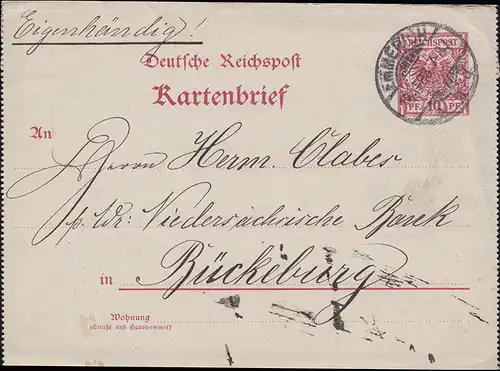 Eigenhändig!
REICHSPOST
Deutsche Reichspost
Kartenbrief
10
PF. PF.
An
Herrn Herm. Clabes
p. Adr: Niedersächsische Bank
in Bückeburg
Wohnung
(Straße und Hausnummer)